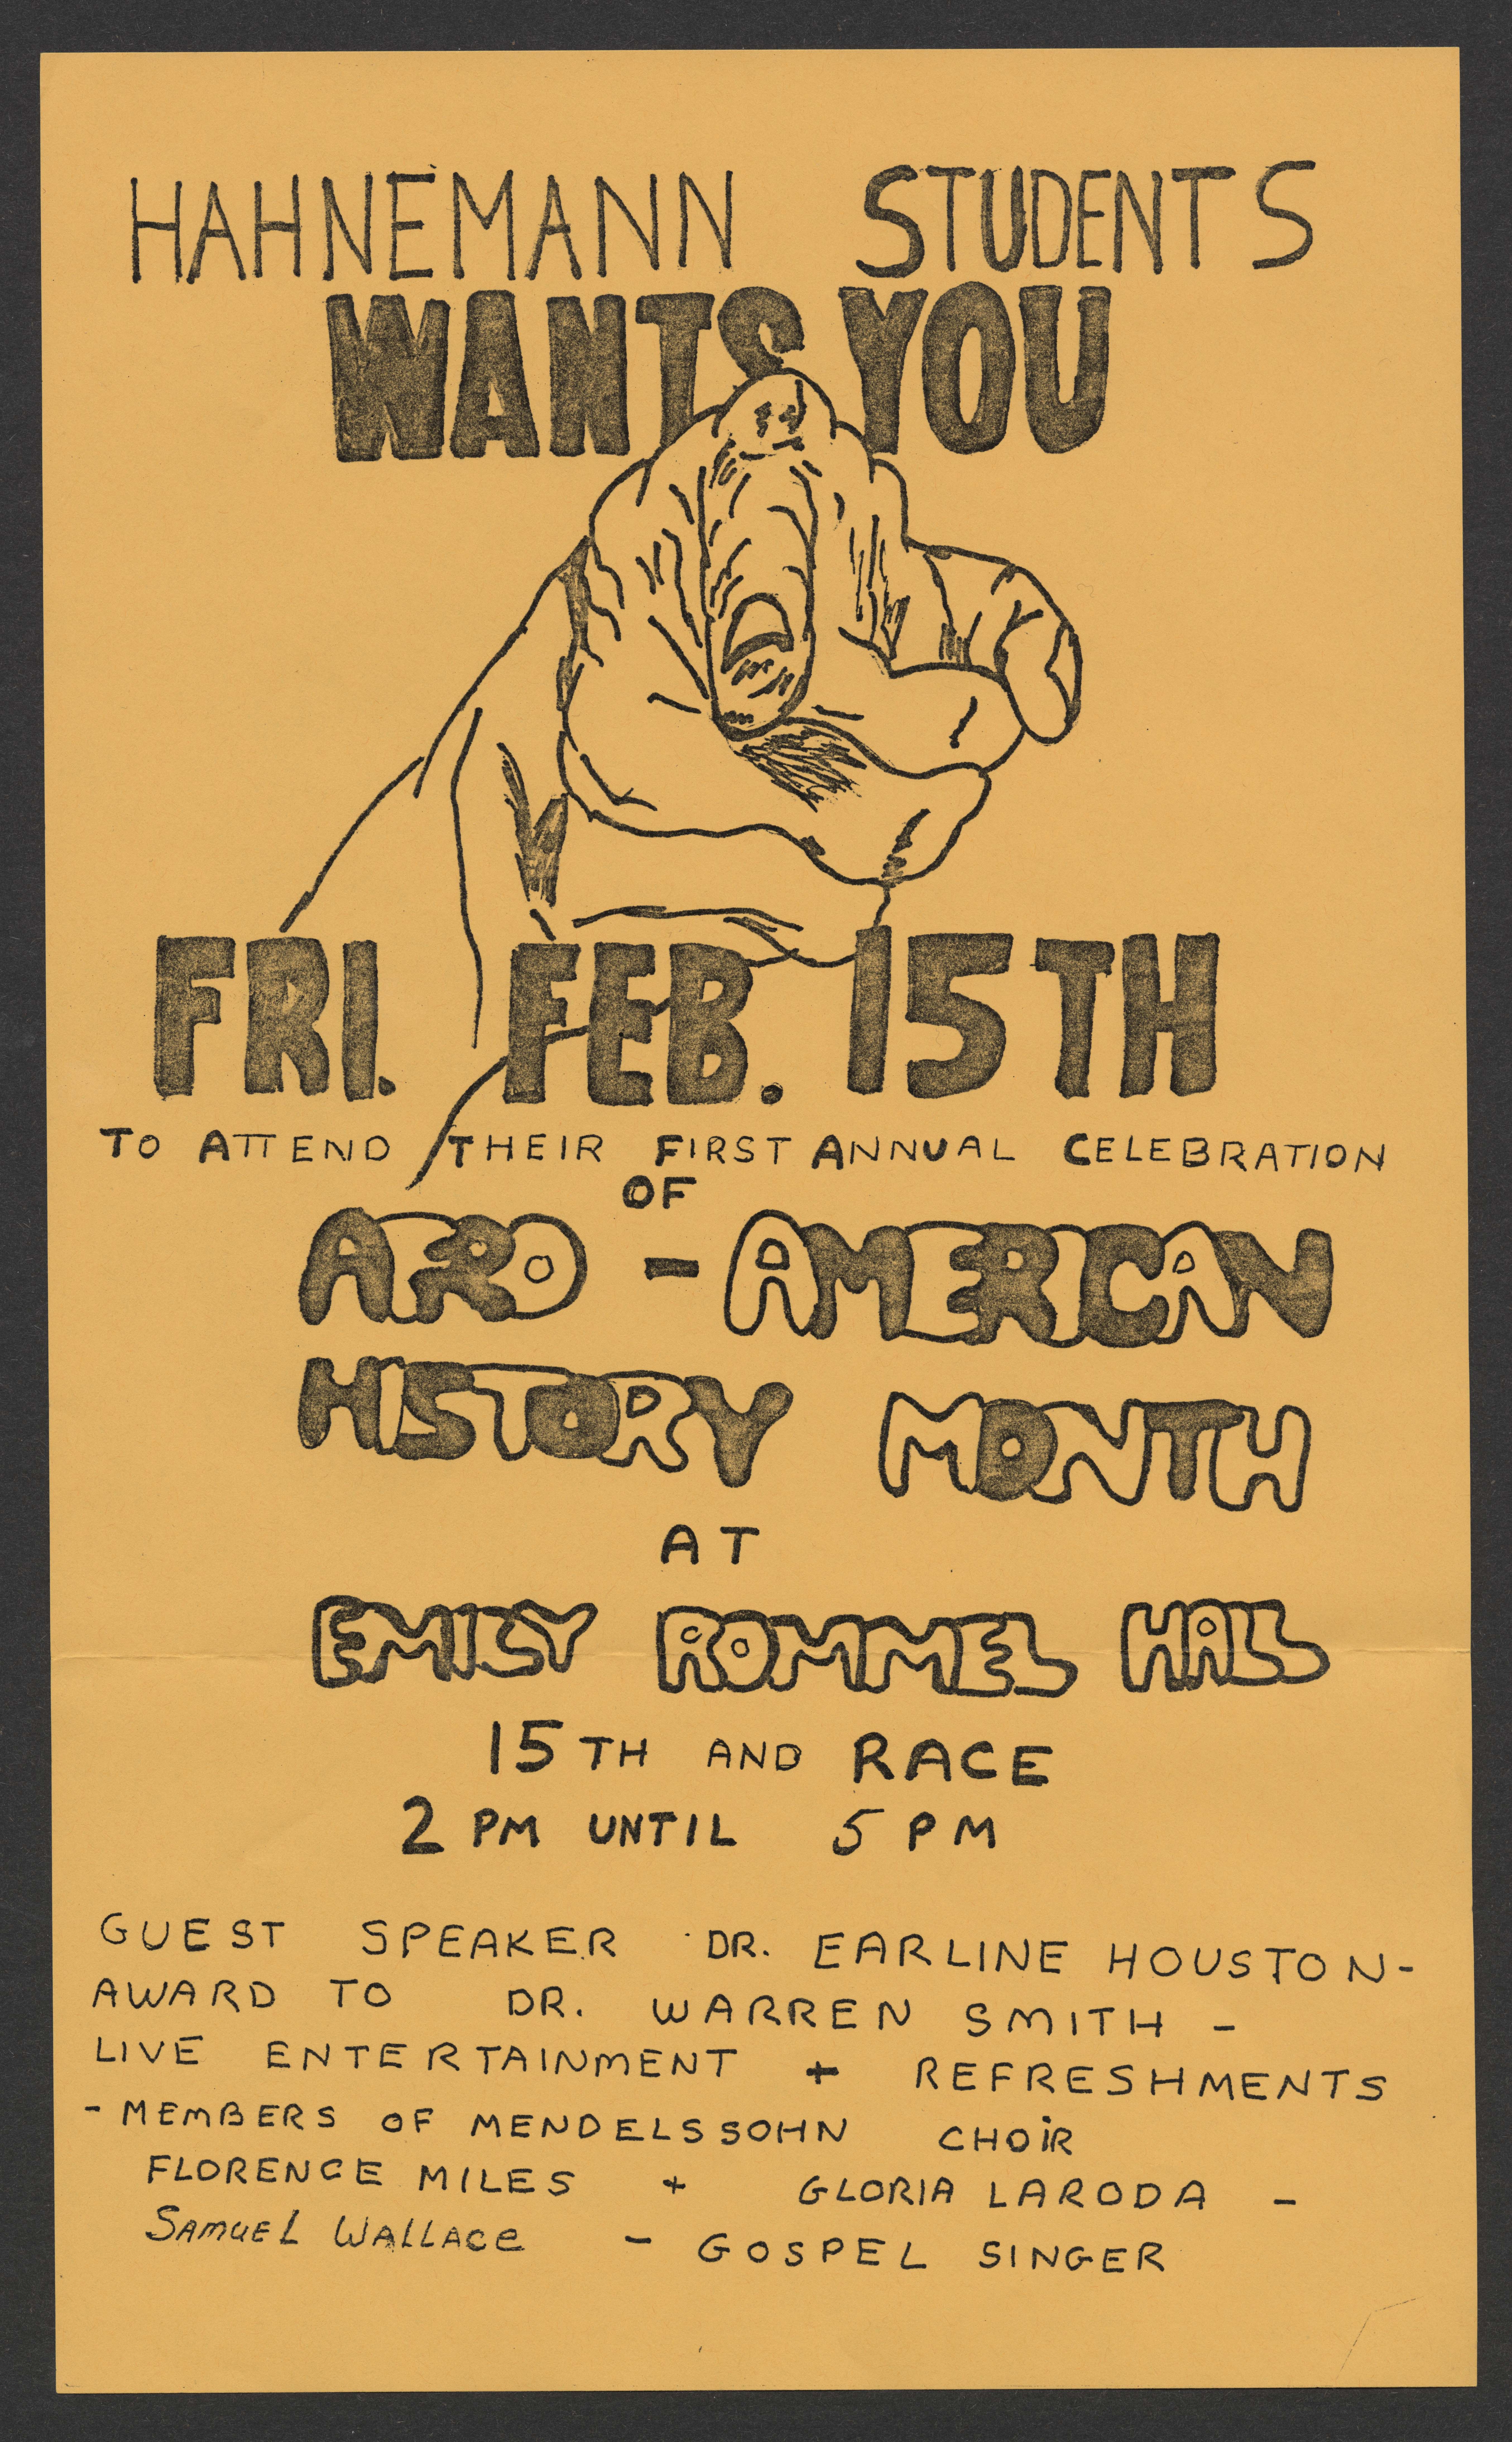 HAHNEMANN STUDENTS
WANTS YOU
FRI. FEB. 15TH
TO ATTEND THEIR FIRST ANNUAL CELEBRATION
OF
AFRO - AMERICAN
HISTORY MONTH
AT
EMILY ROMMEL HALL
15TH AND RACE
2 PM UNTIL 5 PM
GUEST SPEAKER DR. EARLINE HOUSTON-
AWARD TO DR. WARREN SMITH -
LIVE ENTERTAINMENT + REFRESHMENTS
- MEMBERS OF MENDELSSOHN CHOIR
FLORENCE MILES + GLORIA LARODA -
SAMUEL WALLACE - GOSPEL SINGER